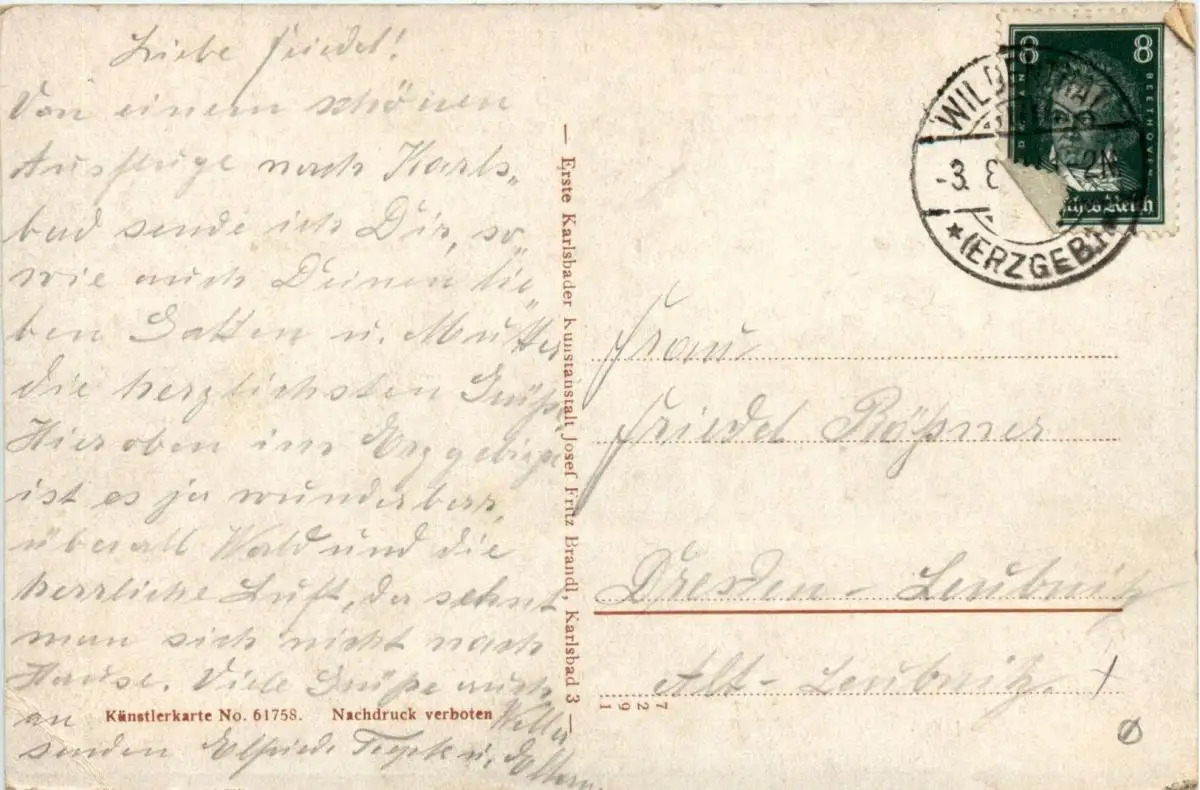 Liebe Friedel!
Von einem schönen
Ausfluge nach Karls„
bad sende ich Dir, so„
wie auch Deinen lie„
ben Gatten u. Mutter
die herzlichsten Grüße.
Hier oben im Erzgebirge
ist es ja wunderbar,
überall Wald und die
herrliche Luft, da sehnt
man sich nicht nach
Hause. Viele Grüße auch
an Willi
senden Elfriede u. Eltern.
Künstlerkarte No. 61758. Nachdruck verboten
— Erste Karlsbader Kunstanstalt Josef Fritz Brandl, Karlsbad 3 —
1927
8 8
BEETHOVEN
ches Reich
WILDENTHAL
-3. 8 -2N
*(ERZGEB.)*
Frau
Friedel Rößner
Dresden - Leubnitz
Alt - Leubnitz. 1